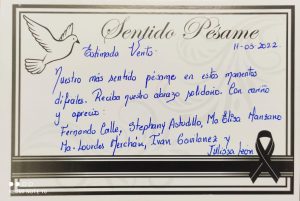 Sentido Pésame
11-03-2022
Estimado Vento.
Nuestro más sentido pésame en estos momentos
difíciles. Reciba nuestro abrazo solidario. Con cariño
y aprecio:
Fernando Calle, Stephany Astudillo, Ma Elisa Manzano
Ma. Lourdes Merchán, Ivan Gonzlanez y
Julissa León